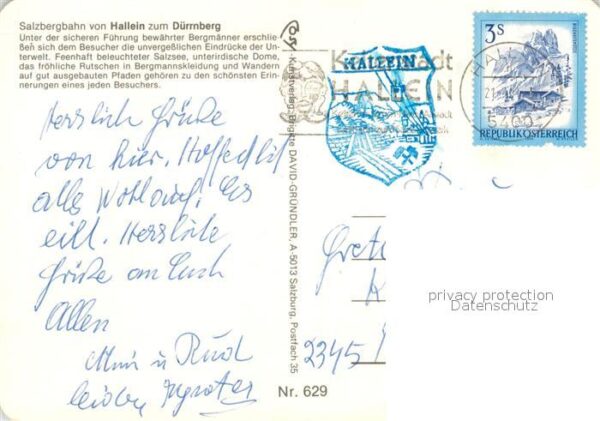 Salzbergbahn von Hallein zum Dürrnberg
Unter der sicheren Führung bewährter Bergmänner erschlie-
ßen sich dem Besucher die unvergeßlichen Eindrücke der Un-
terwelt. Feenhaft beleuchteter Salzsee, unterirdische Dome,
das fröhliche Rutschen in Bergmannskleidung und Wandern
auf gut ausgebauten Pfaden gehören zu den schönsten Erin-
nerungen eines jeden Besuchers.
Herzliche Grüße
von hier. Hoffentlich
alles Wohlauf. Es
eilt. Herzliche
Grüße an Euch
Allen
Mimi u Rud
Nr. 629
Cosy Kunstverlag Brigitte DAVID-GRÜNDLER, A-5013 Salzburg, Postfach 35
HALLEIN
HALLEIN
5400
3S
REPUBLIK ÖSTERREICH
Gret
K
2345
privacy protection
Datenschutz